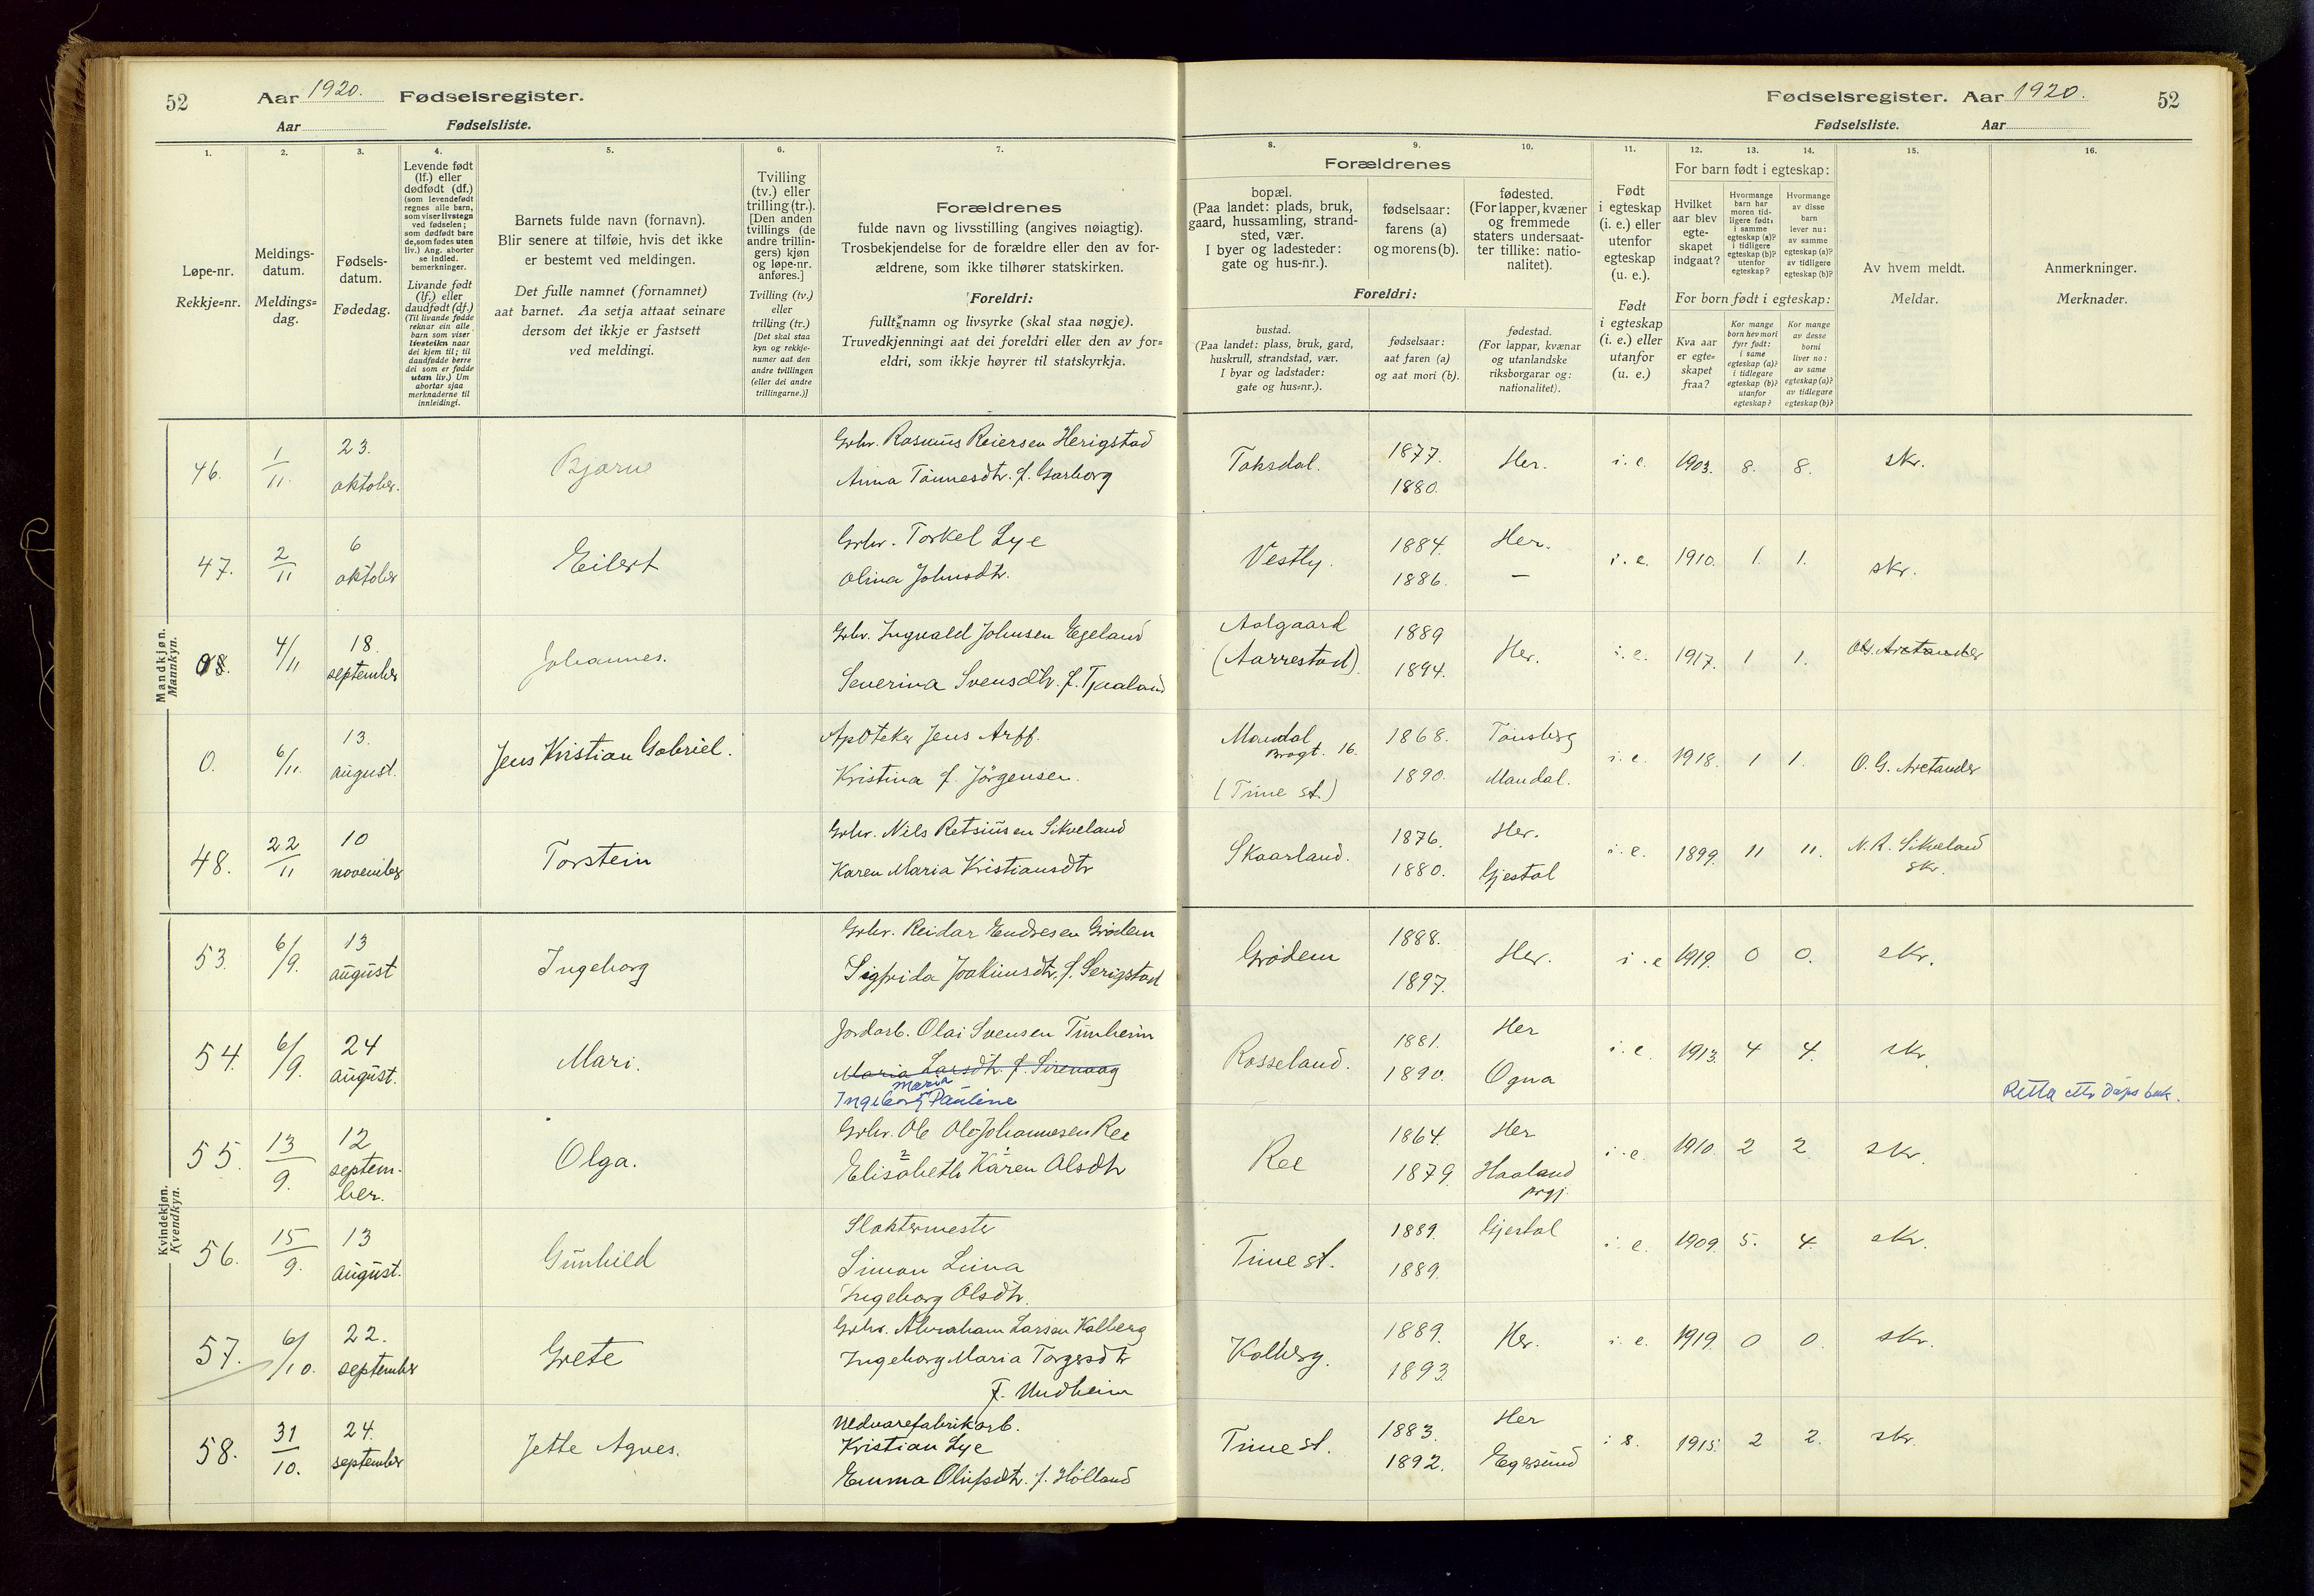 52
Aar 1920. Fødselsregister.
Aar Fødselsliste.
Fødselsregister. Aar 1920.
52
Fødselsliste. Aar
1.
Løpe-nr.
Rekkje=nr.
2.
Meldings-
datum.
Meldings=
dag.
3.
Fødsels-
datum.
Fødedag.
4.
Levende født
(lf.) eller
dødfødt (df.)
(som levendefødt
regnes alle barn,
som viser livstegn
ved fødselen;
som dødfødt bare
de, som fødes uten
liv.) Ang. aborter
se indled.
bemerkninger.
Livande født
(lf.) eller
daudfødt (df.)
(Til livande fødde
reknar ein alle
barn som viser
livsteikn naar
dei kjem til; til
daudfødde berre
dei som er fødde
utan liv.) Um
abortar sjaa
merknaderne til
innleidingi.
5.
Barnets fulde navn (fornavn).
Blir senere at tilføie, hvis det ikke
er bestemt ved meldingen.
Det fulle namnet (fornamnet)
aat barnet. Aa setja attaat seinare
dersom det ikkje er fastsett
ved meldingi.
6.
Tvilling
(tv.) eller
trilling (tr.).
[Den anden
tvillings (de
andre trillin-
gers) kjøn
og løpe-nr.
anføres.]
Tvilling (tv.)
eller
trilling (tr.)
[Det skal staa
kyn og rekkje-
numer aat den
andre tvillingen
(eller dei andre
trillingarne.)]
7.
Forældrenes
fulde navn og livsstilling (angives nøiagtig).
Trosbekjendelse for de forældre eller den av for-
ældrene, som ikke tilhører statskirken.
Foreldri:
fullt namn og livsyrke (skal staa nøgje).
Truvedkjenningi aat dei foreldri eller den av for=
eldri, som ikkje høyrer til statskyrkja.
Forældrenes
8.
bopæl.
(Paa landet: plads, bruk,
gaard, hussamling, strand-
sted, vær.
I byer og ladesteder:
gate og hus-nr.).
9.
fødselsaar:
farens (a)
og morens (b).
10.
fødested.
(For lapper, kvæner
og fremmede
staters undersaat-
ter tillike: natio-
nalitet).
Foreldri:
bustad.
(Paa landet: plass, bruk, gard,
huskrull, strandstad, vær.
I byar og ladstader:
gate og hus=nr.).
fødselsaar:
aat faren (a)
og aat mori (b).
fødestad.
(For lappar, kvænar
og utanlandske
riksborgarar og:
nationalitet).
11.
Født
i egteskap
(i. e.) eller
utenfor
egteskap
(u. e.).
Født
i egteskap
(i. e.) eller
utanfor
(u. e.)
12. 13. 14.
For barn født i egteskap:
Hvilket
aar blev
egte-
skapet
indgaat?
Hvormange
barn har
moren tid-
ligere født:
i samme
egteskap (a)?
i tidligere
egteskap (b)?
utenfor
egteskap?
Hvormange
av disse
barn
lever nu:
av samme
egteskap (a)?
av tidligere
egteskap (b)?
For born født i egteskap:
Kva aar
er egte=
skapet
fraa?
Kor mange
born hev mori
fyrr født:
i same
egteskap (a)?
i tidlegare
egteskap (b)?
utanfor
egteskap?
Kor mange
av desse
borni
liver no:
av same
egteskap (a)?
av tidlegare
egteskap (b)?
15.
Av hvem meldt.
Meldar.
16.
Anmerkninger.
Merknader.
Mandkjøn.
Mannkyn.
46. 1/11 23. oktober. Bjarne Grbr. Rasmus Reiersen Herigstad Taksdal. 1877. Her. i. e. 1903. 8. 8. skr.
Anna Tønnesdtr. f. Garborg 1880.
47. 2/11 6 oktober Eilert Grbr. Torkel Lye Vestly. 1884. Her. i. e. 1910. 1. 1. skr.
Olina Johnsdtr. 1886. —
4/11 18. september Johannes. Grbr. Ingvald Johnsen Egeland Aalgaard 1889 Her. i. e. 1917. 1 1.
Severina Svensdtr. f. Tjaaland (Aarrestad). 1894.
0. 6/11. 13. august. Jens Kristian Gabriel. Apoteker Jens Arff. Mandal Brogt. 16. 1868. Tønsberg i. e. 1918. 1 1. O. G. Arctander
Kristina f. Jørgensen. (Time st.) 1890. Mandal.
48. 22/11 10 november Torstein Grbr. Nils Retsiusen Sikveland Skaarland. 1876. Her. i. e. 1899. 11 11. N. R. Sikveland
Karen Maria Kristiansdtr 1880. Gjestal skr.
Kvindekjøn.
Kvendkyn.
53. 6/9. 13 august Ingeborg Grbr. Reidar Endresen Grødem Grødem 1888. Her. i. e 1919. 0 0. skr.
Sigfrida Joakimsdtr. f. Serigstad 1897.
54. 6/9. 24 august. Mari. Jordarb. Olai Svensen Tunheim Rosseland. 1881. Her i. e. 1913. 4 4. skr.
Maria Larsdtr. f. Sirevaag 1890. Ogna
Maria
Ingeborg Pauline Retta ettr daps bok.
55. 13/9. 12 september. Olga. Grbr. Ole Olø Johannesen Ree Ree 1864. Her i. e. 1910. 2 2. skr.
2 1
Elisabeth Karen Olsdtr 1879. Haaland prgj.
56. 15/9. 13 august. Gunhild Slaktermester Time st. 1889. Gjestal i. e. 1909. 5. 4. skr.
Simon Lima 1889.
Ingeborg Olsdtr.
57. 6/10. 22. september Grete Grbr. Abraham Larsen Kalberg Kalberg. 1889. Her. i. e. 1919. 0 0. skr.
Ingeborg Maria Torgersdtr 1893.
f. Undheim
58. 31/10. 24. september Jette Agnes. Uldvarefabrikarb. Time st. 1883. Her i e. 1915. 2 2. skr.
Kristian Lye 1892. Egersund
Emma Olufsdtr. f. Hølland